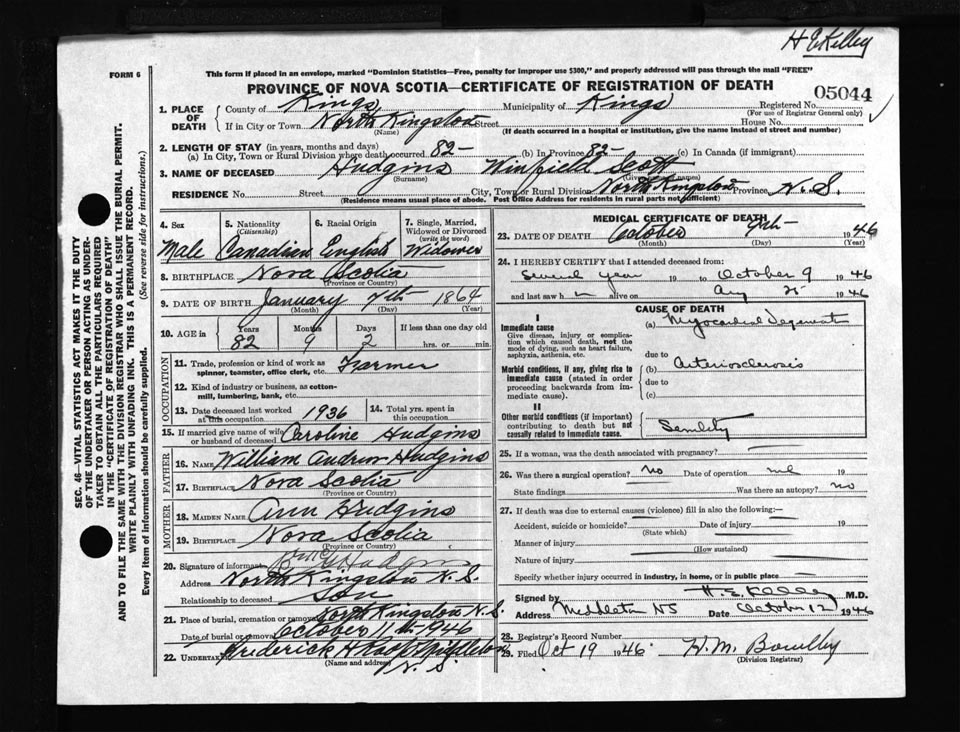 H E Kelley
FORM 6
This form if placed in an envelope, marked "Dominion Statistics—Free, penalty for improper use $300," and properly addressed will pass through the mail "FREE"
PROVINCE OF NOVA SCOTIA—CERTIFICATE OF REGISTRATION OF DEATH
05044
1. PLACE OF DEATH County of Kings Municipality of Kings Registered No.
(For use of Registrar General only)
If in City or Town North Kingston Street House No.
(Name) (If death occurred in a hospital or institution, give the name instead of street and number)
2. LENGTH OF STAY (in years, months and days)
(a) In City, Town or Rural Division where death occurred 82- (b) In Province 82- (c) In Canada (if immigrant)
3. NAME OF DECEASED Hudgins Winfield Scott
(Surname) (Given names)
RESIDENCE No. Street City, Town or Rural Division North Kingston Province N.S.
(Residence means usual place of abode. Post Office Address for residents in rural parts not sufficient)
SEC. 46—VITAL STATISTICS ACT MAKES IT THE DUTY
OF THE UNDERTAKER OR PERSON ACTING AS UNDER-
TAKER TO OBTAIN ALL THE PARTICULARS REQUIRED
IN THE "CERTIFICATE OF REGISTRATION OF DEATH"
AND TO FILE THE SAME WITH THE DIVISION REGISTRAR WHO SHALL ISSUE THE BURIAL PERMIT.
WRITE PLAINLY WITH UNFADING INK. THIS IS A PERMANENT RECORD.
Every item of information should be carefully supplied. (See reverse side for instructions.)
4. Sex 5. Nationality 6. Racial Origin 7. Single, Married,
(Citizenship) Widowed or Divorced
(write the word)
Male Canadian English Widower
8. BIRTHPLACE Nova Scotia
(Province or Country)
9. DATE OF BIRTH January 7th 1864
(Month) (Day) (Year)
10. AGE in Years Months Days If less than one day old
82 9 2 hrs. or min.
OCCUPATION
11. Trade, profession or kind of work as Farmer
spinner, teamster, office clerk, etc.
12. Kind of industry or business, as cotton-
mill, lumbering, bank, etc.
13. Date deceased last worked 1936 14. Total yrs. spent in
at this occupation this occupation
15. If married give name of wife Caroline Hudgins
or husband of deceased
FATHER
16. NAME William Andrew Hudgins
17. BIRTHPLACE Nova Scotia
(Province or Country)
MOTHER
18. MAIDEN NAME Ann Hudgins
19. BIRTHPLACE Nova Scotia
(Province or Country)
20. Signature of informant
Address North Kingston N.S.
Relationship to deceased Son
21. Place of burial, cremation or removal North Kingston N.S.
Date of burial or removal October 11th 1946
22. Undertaker Frederick H Middleton
(Name and address) N.S.
MEDICAL CERTIFICATE OF DEATH
23. DATE OF DEATH October 9th 1946
(Month) (Day) (Year)
24. I HEREBY CERTIFY that I attended deceased from:
Several year 19 to October 9 1946
and last saw h alive on Aug 25 1946
CAUSE OF DEATH
I
Immediate cause (a) Myocardial Degenerat
Give disease, injury or complica-
tion which caused death, not the
mode of dying, such as heart failure,
asphyxia, asthenia, etc.
due to
Morbid conditions, if any, giving rise to (b) Arteriosclerosis
immediate cause (stated in order due to
proceeding backwards from im-
mediate cause). (c)
II
Other morbid conditions (if important)
contributing to death but not Senility
causally related to immediate cause.
25. If a woman, was the death associated with pregnancy?
26. Was there a surgical operation? no Date of operation 19
State findings Was there an autopsy? no
27. If death was due to external causes (violence) fill in also the following:—
Accident, suicide or homicide? Date of injury 19
(State which)
Manner of injury
(How sustained)
Nature of injury
Specify whether injury occurred in industry, in home, or in public place
Signed by H. E. Kelley M.D.
Address Middleton NS Date October 12 1946
28. Registrar's Record Number
29. Filed Oct 19 1946 H.M.
(Division Registrar)